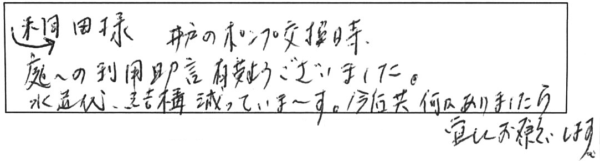 和田様 井戸のポンプ交換時、
庭への利用助言有難うございました。
水道代、結構減っていま〜す。今后共何にありましたら
宜しくお願いします